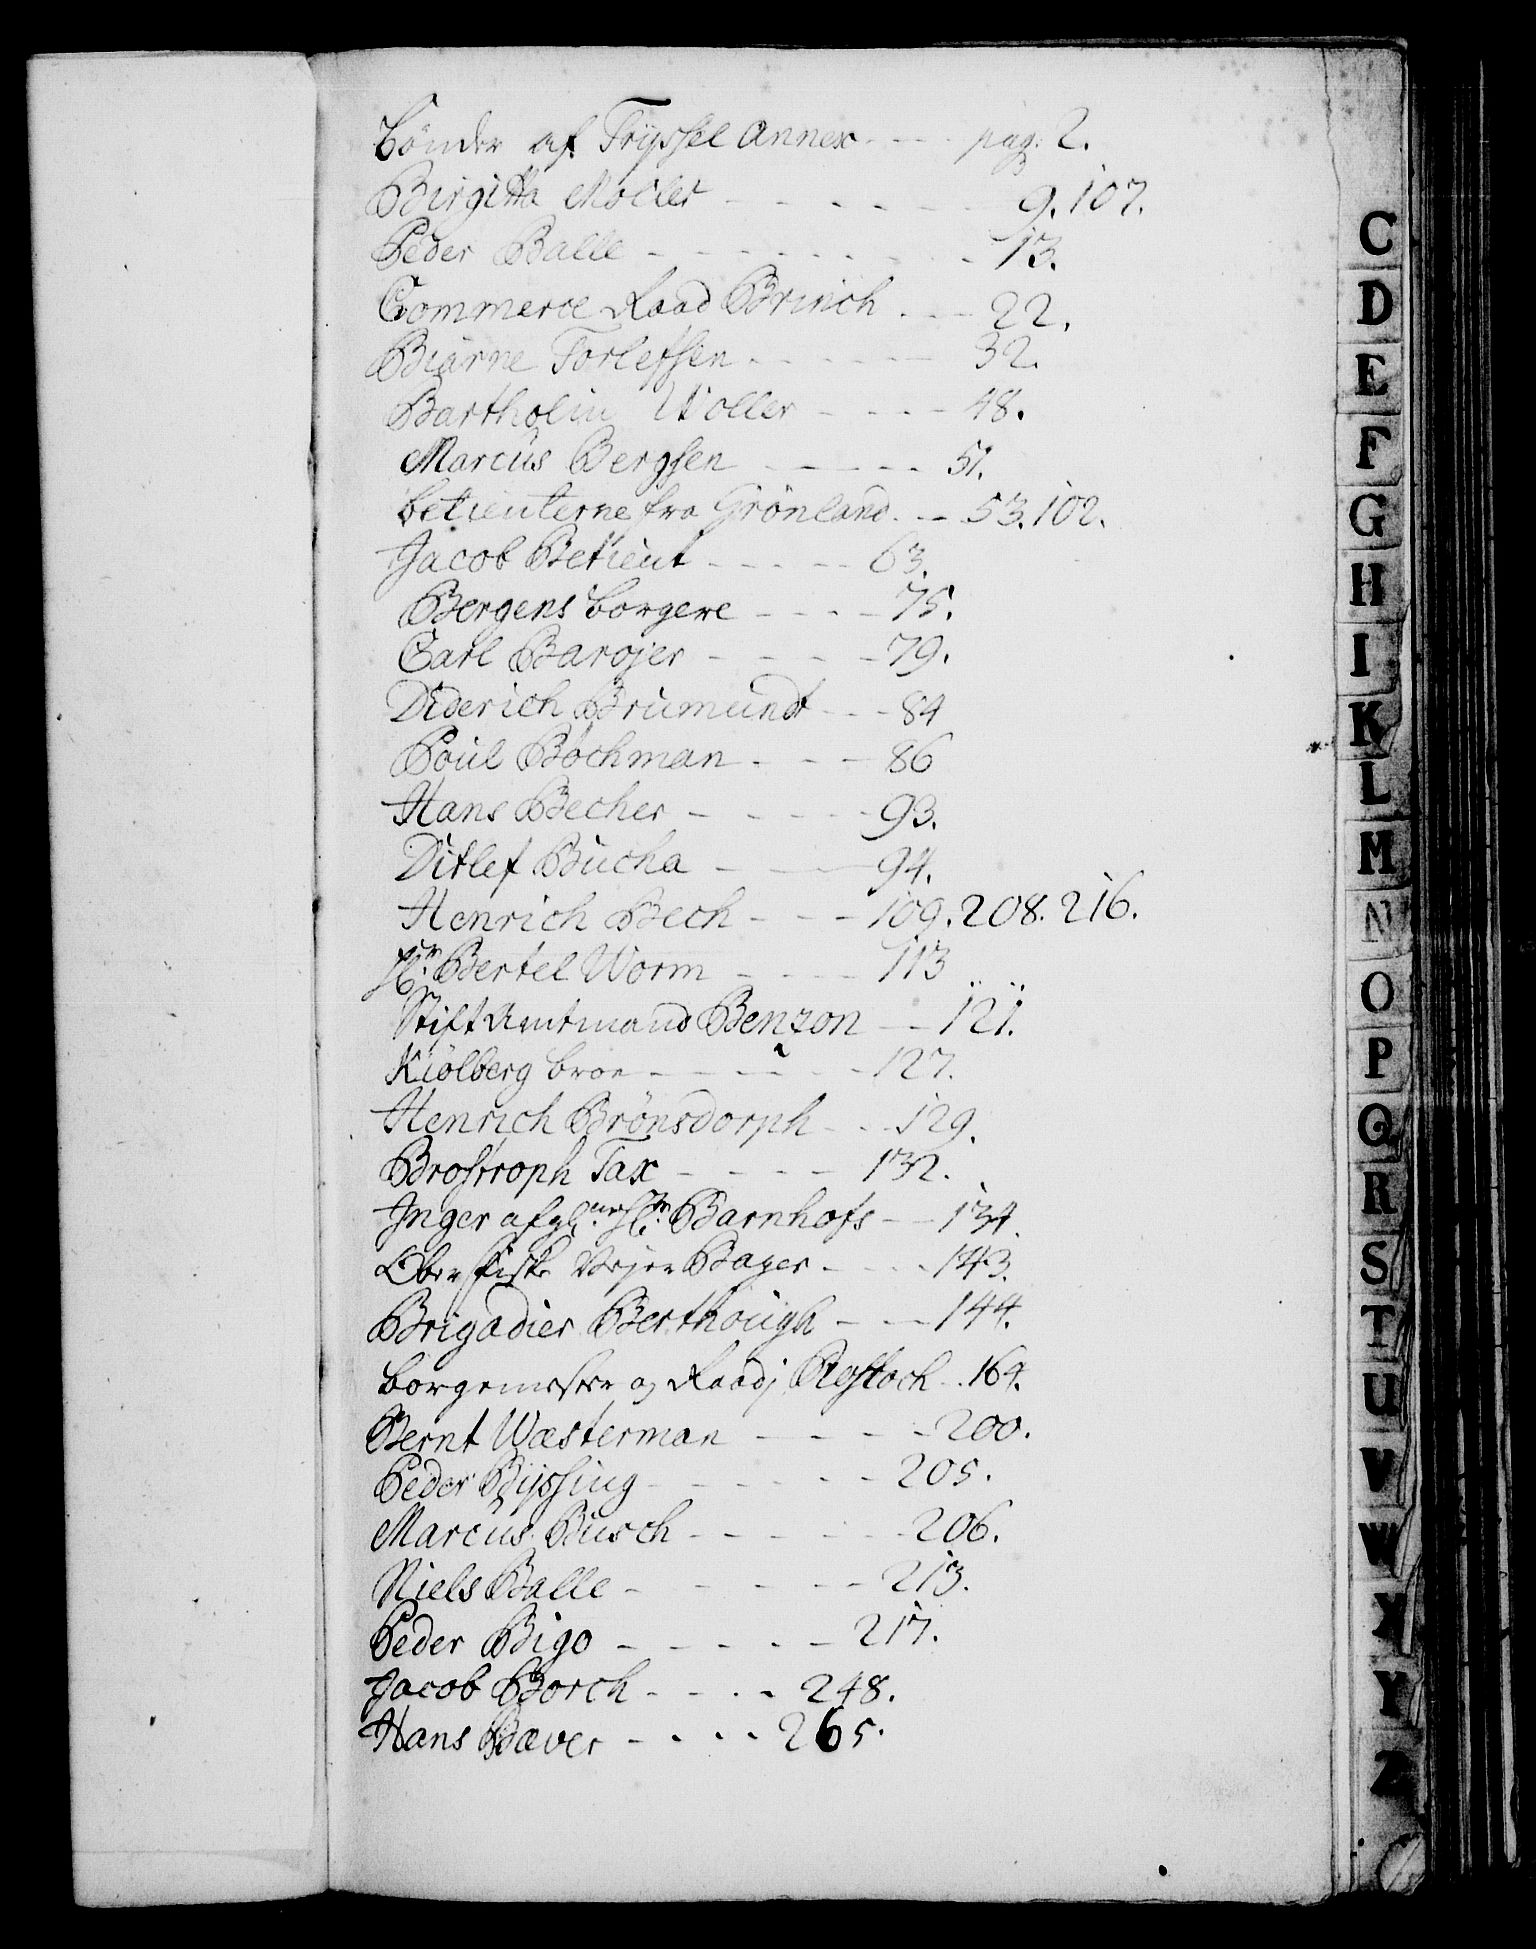 Bönder af Tryssel Annex - - - pag: 2.
Birgitta Moller - - - - - - 9. 107.
Peder Balle - - - - - - - - 13.
Commerce Raad Brinch - - - 22.
Biarne Torlefsen - - - - - 32.
Bartholin Woller - - - - 48.
Marcus Bergsen - - - - - 51.
betienterne fra Grönland - - 53. 102.
Jacob Betient - - - - - 63.
Bergens borgere - - - - 75.
Carl Barojer - - - - - 79.
Diderich Brumundt - - - 84
Poul Bochman - - - - 86
Hans Becher - - - - - 93.
Ditlef Bucha - - - - 94.
Henrich Bech - - - 109. 208. 216.
Hr Bertel Worm - - - - 113
Stift Amtmand Benzon - - 121.
Kiölberg broe - - - - - - 127.
Henrich Brönsdorph - - - 129.
Brostroph Tax - - - - - 132.
Inger Barnhofs - - 134.
Ober fiske Vejer Bager - - - - 143.
Brigadier Berthough - - - 144.
borgemester og Raadj Rostoch - - 164.
Bernt Wæsterman - - - - - 200.
Peder Byssing - - - - - - 205.
Marcus Busch - - - - - - 206.
Niels Balle - - - - - - 213.
Peder Bigo - - - - - - 217.
Jacob Borch - - - - 248.
Hans Bæver - - - - 265.
C
D
E
F
G
H
I
K
L
M
N
O
P
Q
R
S
T
U
V
W
X
Y
Z